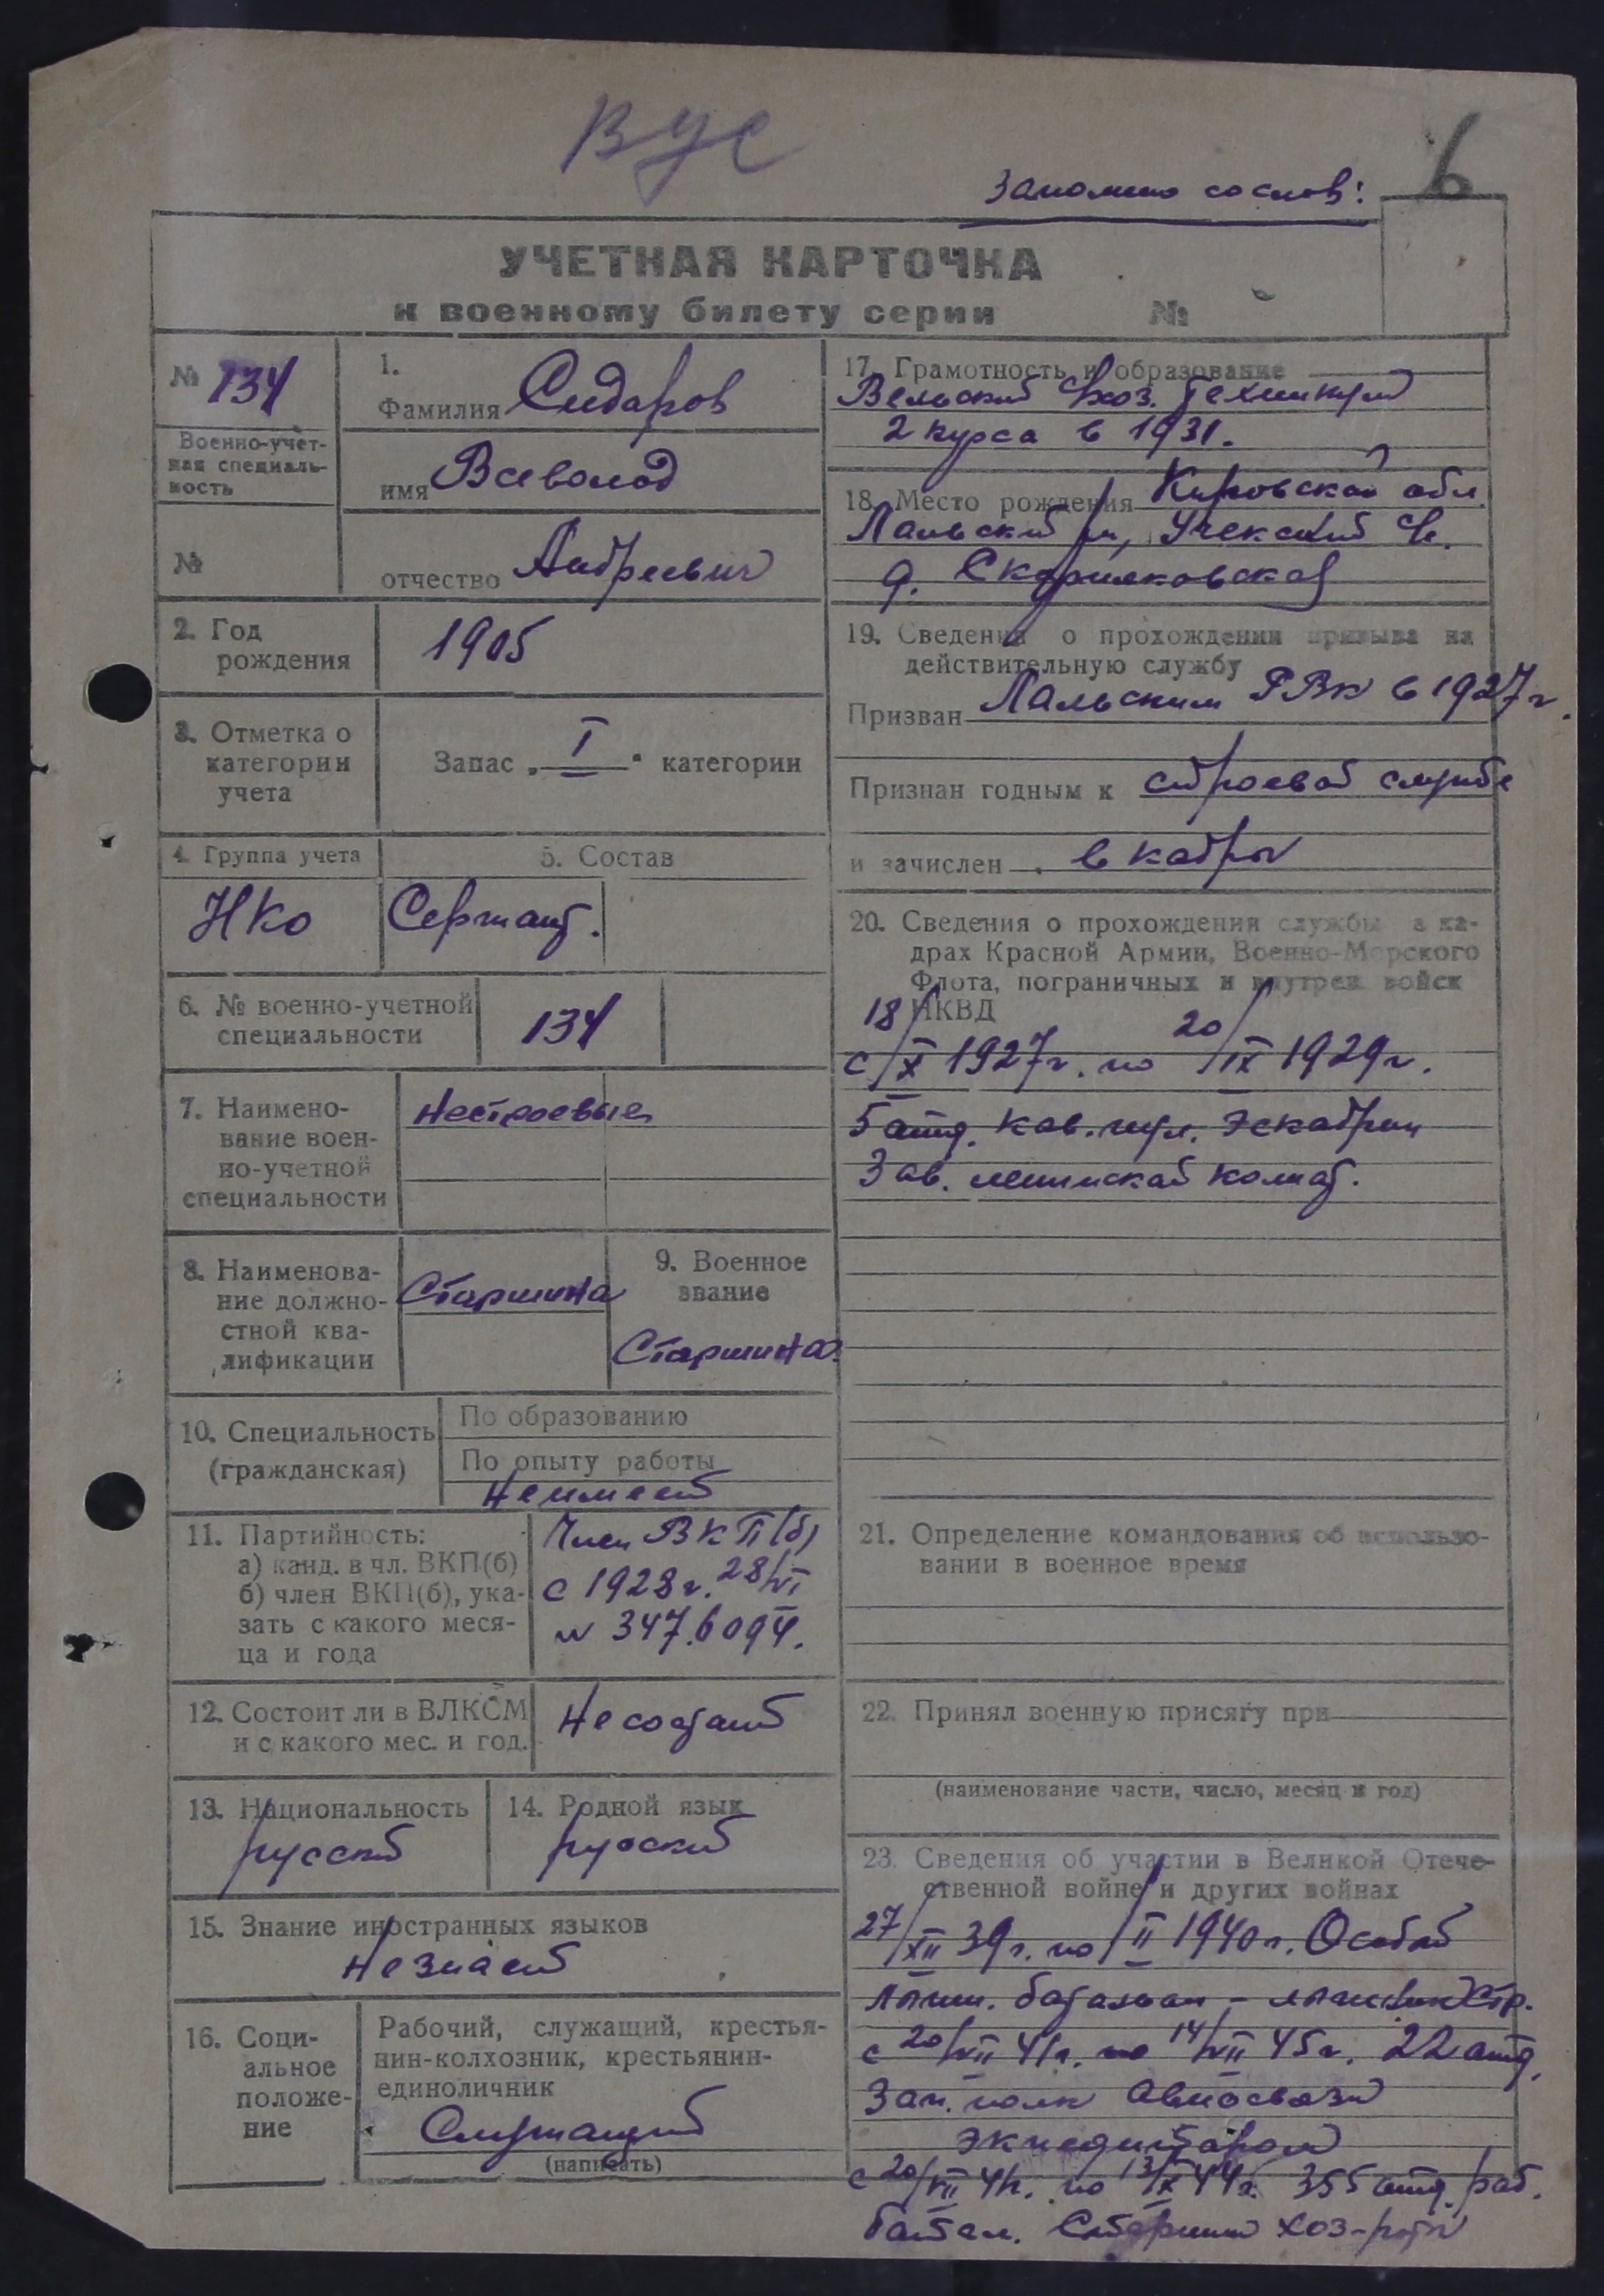 ВУС
Заполнено со слов:
6
УЧЕТНАЯ КАРТОЧКА
к военному билету серии №
№ 134
Военно-учет-
ная специаль-
ность
№
1.
Фамилия Сидоров
имя Всеволод
отчество Андреевич
2. Год
рождения
1905
3. Отметка о
категории
учета
Запас „ I " категории
4. Группа учета
НКО
5. Состав
Сержант.
6. № военно-учетной
специальности
134
7. Наимено-
вание воен-
но-учетной
специальности
Нестроевые
8. Наименова-
ние должно-
стной ква-
лификации
Старшина
9. Военное
звание
Старшина
10. Специальность
(гражданская)
По образованию
По опыту работы
Не имеет
11. Партийность:
а) канд. в чл. ВКП(б)
б) член ВКП(б), ука-
зать с какого меся-
ца и года
Член ВКП(б)
с 1928 г. 28/VI
№ 347.6094.
12. Состоит ли в ВЛКСМ
и с какого мес. и год.
Не состоит
13. Национальность
русский
14. Родной язык
русский
15. Знание иностранных языков
Не знает
16. Соци-
альное
положе-
ние
Рабочий, служащий, крестья-
нин-колхозник, крестьянин-
единоличник
Служащий
(написать)
17. Грамотность и образование
Вельский с/хоз. техникум
2 курса в 1931.
18. Место рождения Кировской обл.
Лальский р-н, Учекский с/с.
д.
19. Сведения о прохождении призыва на
действительную службу
Призван Лальским РВК в 1927 г.
Признан годным к строевой службе
и зачислен в кадры
20. Сведения о прохождении службы в ка-
драх Красной Армии, Военно-Морского
Флота, пограничных и внутрен. войск
НКВД
с 18/X 1927 г. по 20/IX 1929 г.
5 отд. кав. пул. эскадрон
Зав. ленинской комнат.
21. Определение командования об использо-
вании в военное время
22. Принял военную присягу при
(наименование части, число, месяц и год)
23. Сведения об участии в Великой Отече-
ственной войне и других войнах
27/XII 39 г. по /II 1940 г. Особый
лыжн. батальон – лыжник стр.
с 20/VII 41 г. по 14/VII 45 г. 22 отд.
Зап. полк Автосвязи
экпедитором
с 20/VII 41 г. по 13/X 44 г. 355 отд. раб.
батал. Старшина хоз-роты